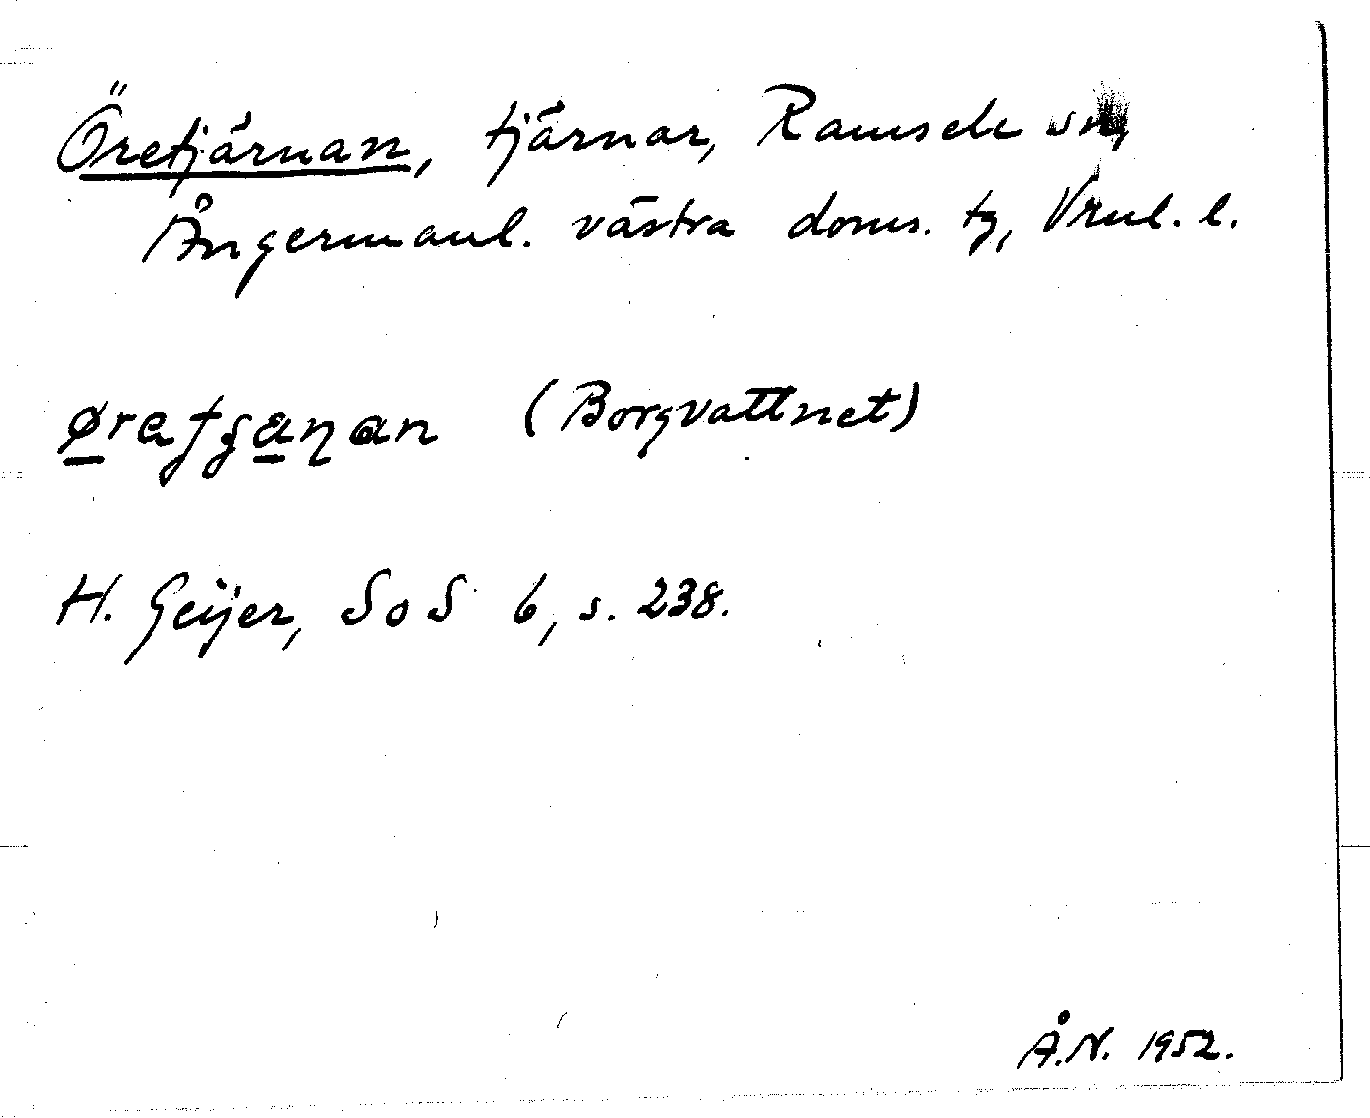 Öretjärnan, tjärnar, Ramsele sn,
Ångermanl. västra doms. tg, Vrnl. l.
(Borgvattnet)
H. Geijer, SoS 6, s. 238.
Å.N. 1952.